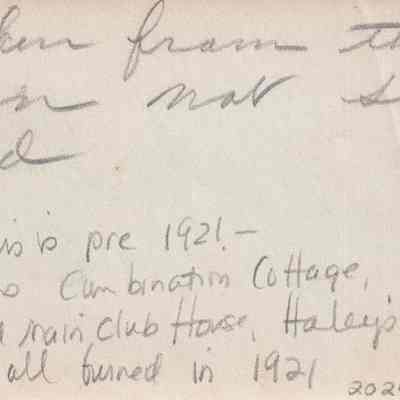 ken from th
n not s
d
is is pre 1921 -
o Combination Cottage,
main Club House, Haley's
all burned in 1921
202